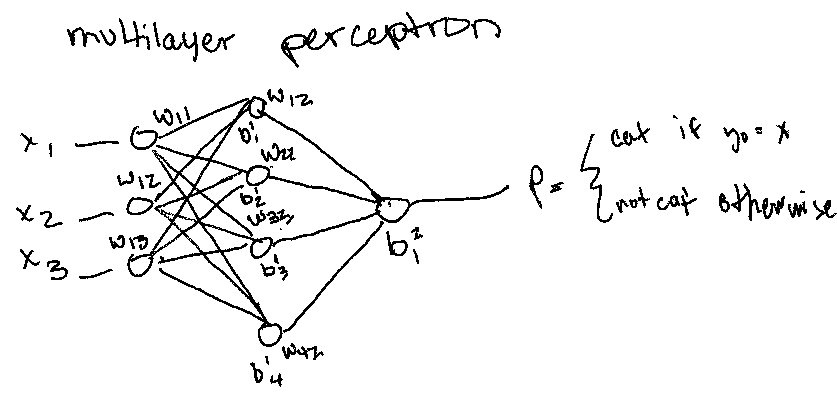 multilayer perceptron
x₁
x₂
x₃
w₁₁
w₁₂
w₁₃
w₁₂
b¹₁
w₂₂
b¹₂
w₃₂
b¹₃
w₄₂
b¹₄
b²₁
P = { cat if y₀ = x
not cat otherwise